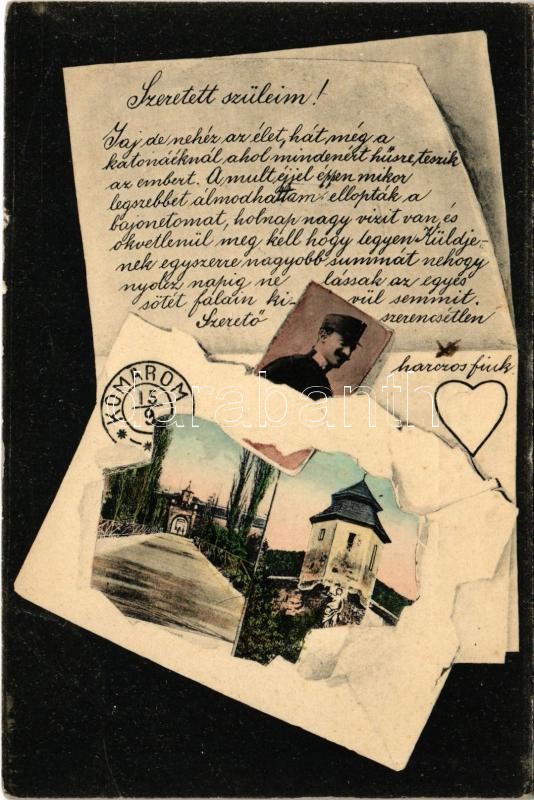 Szeretett szüleim!
Jaj de nehéz az élet, hát még a
katonáéknál, ahol mindenért hűsre teszik
az embert. A mult éjjel éppen mikor
legszebbet álmodhattam ellopták a
bajonetomat, holnap nagy vizit van, és
okvetlenül meg kell hogy legyen Küldje-
nek egyszerre nagyobb summát nehogy
nyolcz napig ne lássak az egyes
sötét falain ki- vül semmit.
Szerető szerencsétlen
harczos fiuk.
KOMÁROM
15
9
darabanth.com